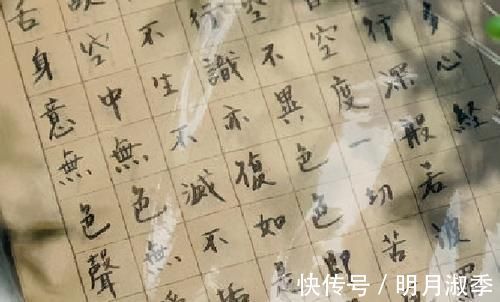 多心經
行深般若波
空度一切苦
空不異色色即
行識亦復如是
不生不滅不
空中無色無
舌身意無色聲
快传号／明月淑季